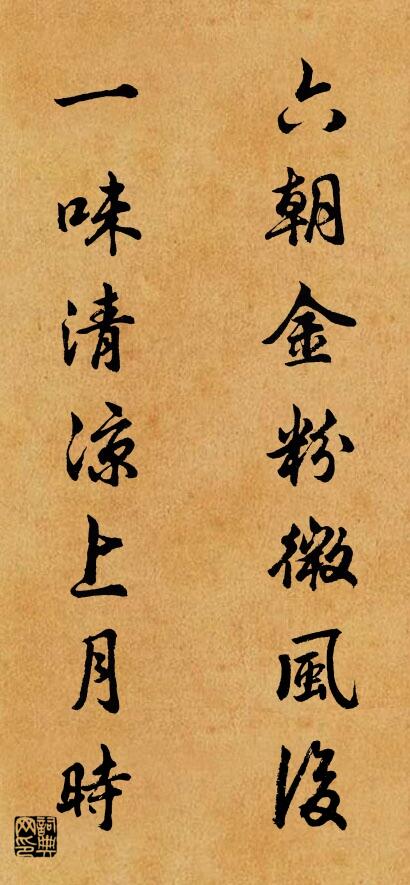 六朝金粉微風後
一味清涼上月時
詞典網印